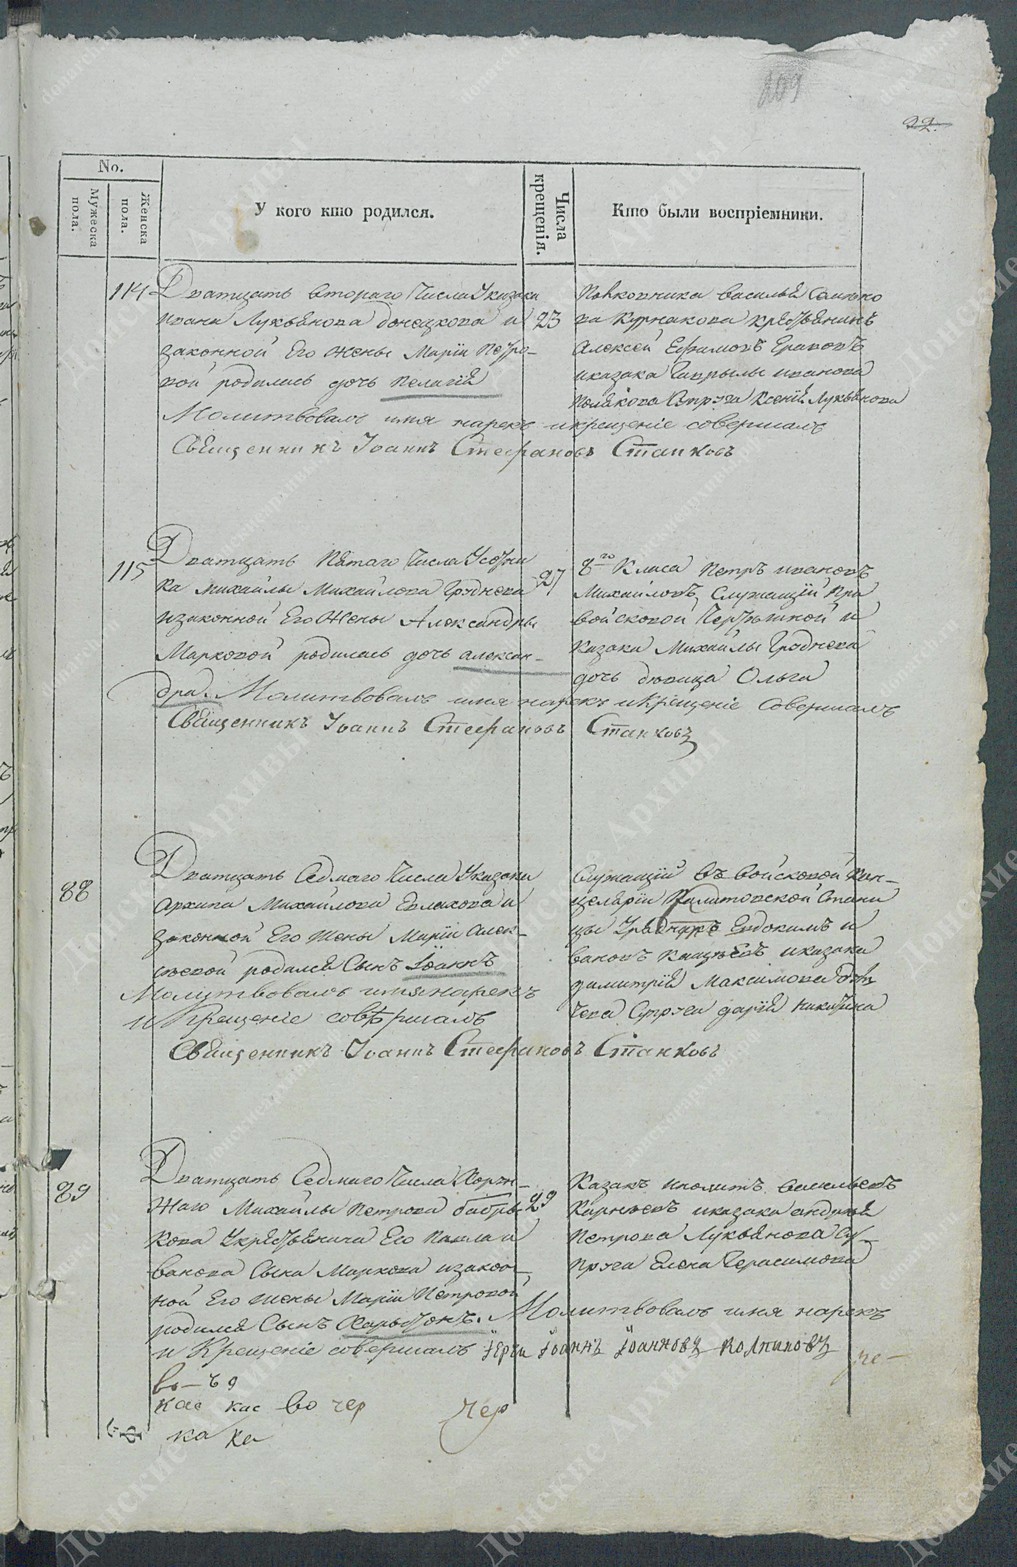 209
22.
No.
Мужеска пола.
Женска пола.
У кого кто родился.
Числа крещенія.
Кто были воспріемники.
114
Дватцать втораго Числа Указака
ивана Лукьянова донецкова и
законной Его жены Маріи Петро-
вой родилась дочь пелагія
23
Полковника василья
ва Курнакова крестьянинъ
Алексей Ефимовъ
иказака Гаврылы иванова
Полякова Супруга Ксенія Лукьянова
Молитвовалъ имя нарекъ икрещеніе совершалъ
Священникъ Іоаннъ Стефановъ Станковъ
115
Дватцать пятаго Числа
ка михайлы Михайлова Груднева
изаконной Его Жены Александры
Марковой родилась дочь алексан-
дра. Молитвовалъ имя нарекъ икрещеніе Совершалъ
Священникъ Іоаннъ Стефановъ Станковъ
27
8го Класа петръ ивановъ
Михайловъ, Служащій при
войсковой Чертежной и
Казака Михайлы Груднева
дочь девица Ольга
88
Дватцать Седмаго Числа Указака
архипа Михайлова Евлахова и
законной Его жены Маріи Алек-
сеевой родился Сынъ Іоаннъ
Молитвовалъ имя нарекъ
и Крещеніе совершалъ
Священникъ Іоаннъ Стефановъ Станковъ
Служащій въ войсковой Кан-
целяріи Филиповской Стани
цы Урядникъ Евдокимъ и
вановъ иказака
димитрія Максимова
чева Супруга дарія никитина
89
Дватцать Седмаго Числа Хорун-
жаго Михайлы петрова
кова Укрестьянина Его павла и
ванова Сына Маркова изакон-
ной Его жены Маріи Петровой
родился Сынъ Харитонъ. Молитвовалъ имя нарекъ
и Крещеніе совершалъ Іерей Іоаннъ Іоанновъ Колпиковъ
29
Казакъ иполитъ васильевъ
Карнеевъ иказака андрея
петрова Лукьянова Су-
пруга Елена Герасимова
кас кас во чер
чер
ка ка